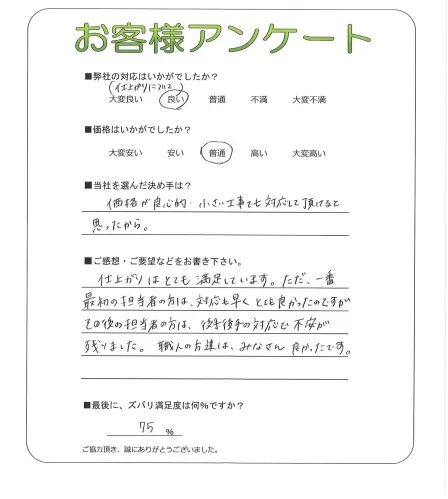 お客様アンケート
■弊社の対応はいかがでしたか？
(仕上がりについて)
大変良い 良い 普通 不満 大変不満
■価格はいかがでしたか？
大変安い 安い 普通 高い 大変高い
■当社を選んだ決め手は？
価格が良心的・小さい工事でも対応して頂けると
思ったから。
■ご感想・ご要望などをお書き下さい。
仕上がりはとても満足しています。ただ、一番
最初の担当者の方は、対応も早くとても良かったのですが
その後の担当者の方は、後手後手の対応で不安が
残りました。職人の方達は、みなさん良かったです。
■最後に、ズバリ満足度は何%ですか？
75 %
ご協力頂き、誠にありがとうございました。